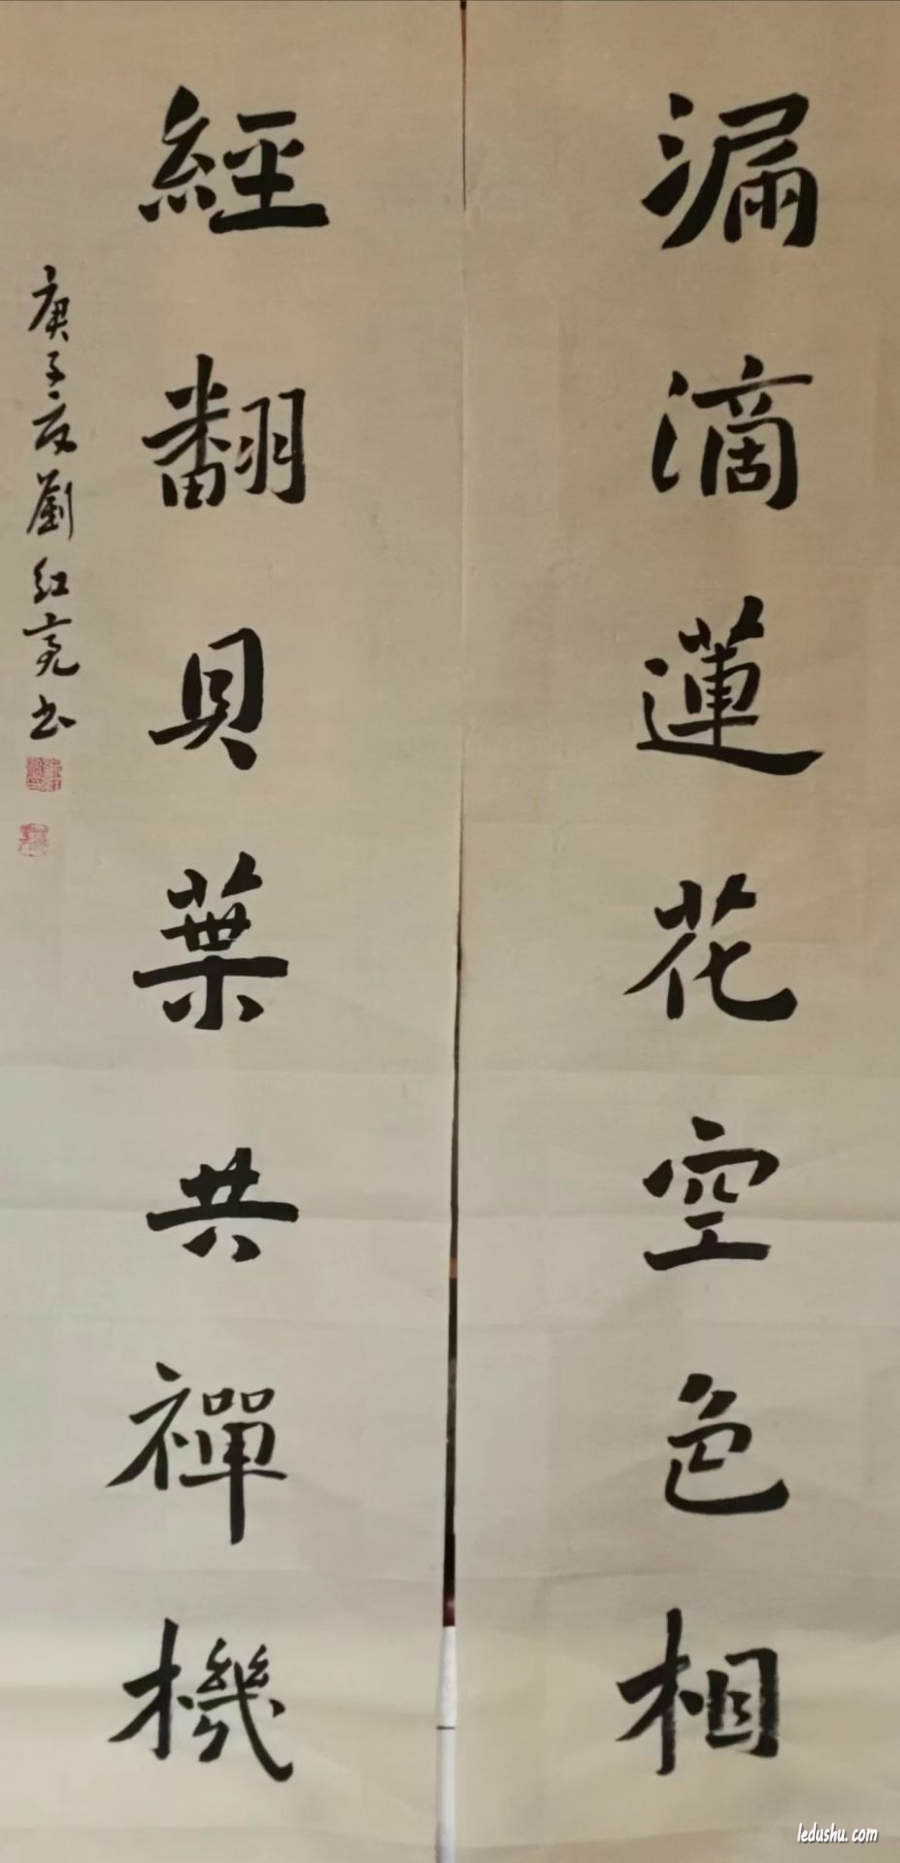 漏滴蓮花空色相
經翻貝葉共禪機
庚子夏劉紅亮书
ledushu.com